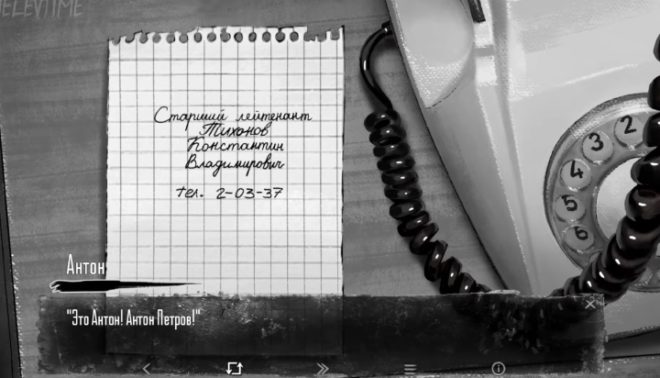 Старший лейтенант
Тихонов
Константин
Владимирович
тел. 2-03-37
2
3
4
5
6
Антон
"Это Антон! Антон Петров!"